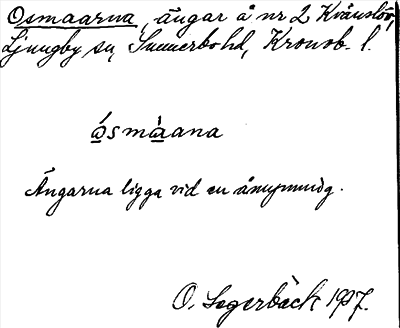 Osmaarna, ängar å nr 2 Kvänslöv,
Ljungby sn, Sunnerbo hd, Kronob. l.
ósmàana
Ängarna ligga vid en åmynning.
O. Sagerbäck 1927.